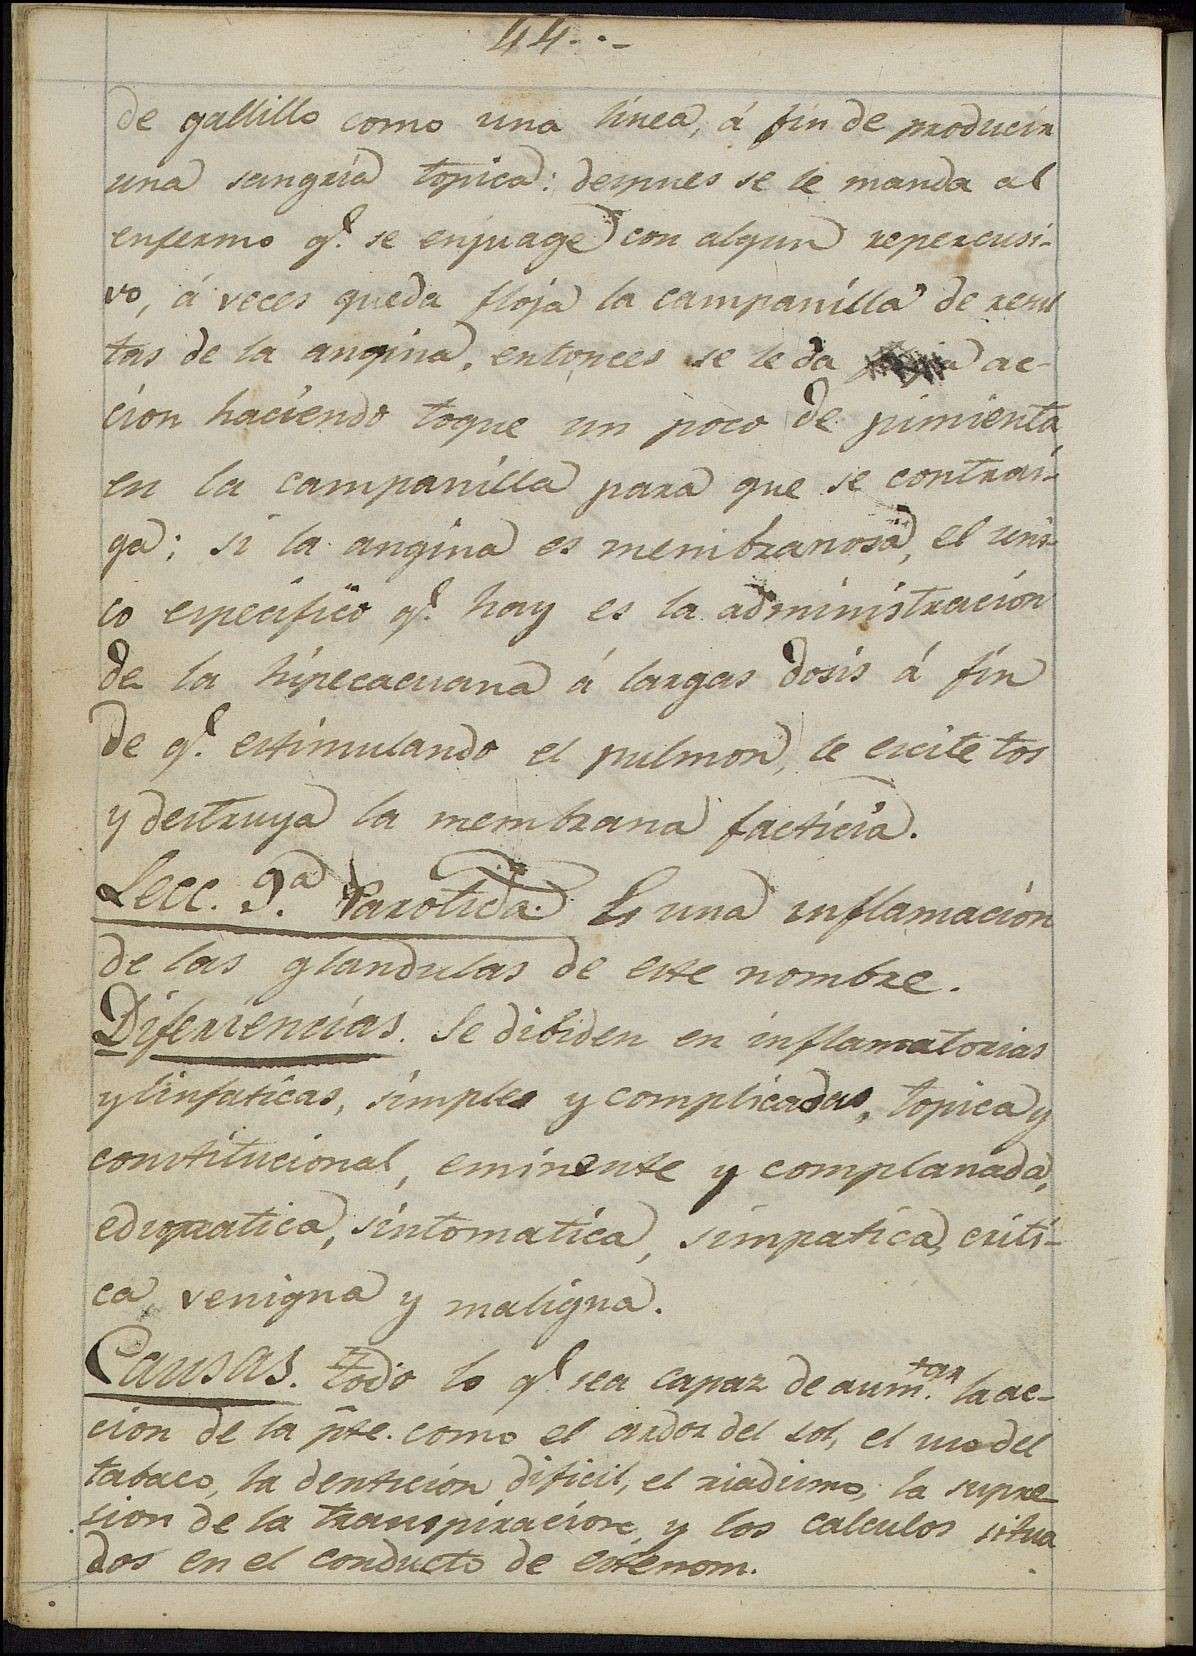 44.
de gallillo como una linea, á fin de producir
una sangria topica: despues se le manda al
enfermo q.e se enjuage con algun repercusi-
vo, á veces queda floja la campanilla de resul
tas de la angina, entonces se le da ac-
cion haciendo toque un poco de pimienta
en la campanilla para que se contrai-
ga; si la angina es membranosa, el uni-
co especifico q.e hay es la administracion
de la hipecacuana á largas dosis á fin
de q.e estimulando el pulmon, le escite tos
y destruya la membrana facticia.
Lecc. 9.a Parotida. Es una inflamacion
de las glandulas de este nombre.
Diferiencias. Se dibiden en inflamatorias
y linfaticas, simples y complicadas, topica y
constitucional, eminente y complanada,
ediopatica, sintomatica, simpatica, criti-
ca venigna y maligna.
Causas. Todo lo q.e sea capaz de aum.tar la ac-
cion de la pte. como el ardor del sol, el uso del
tabaco, la denticion dificil, el la supre
sion de la transpiracion, y los calculos situa
dos en el conducto de estenom.